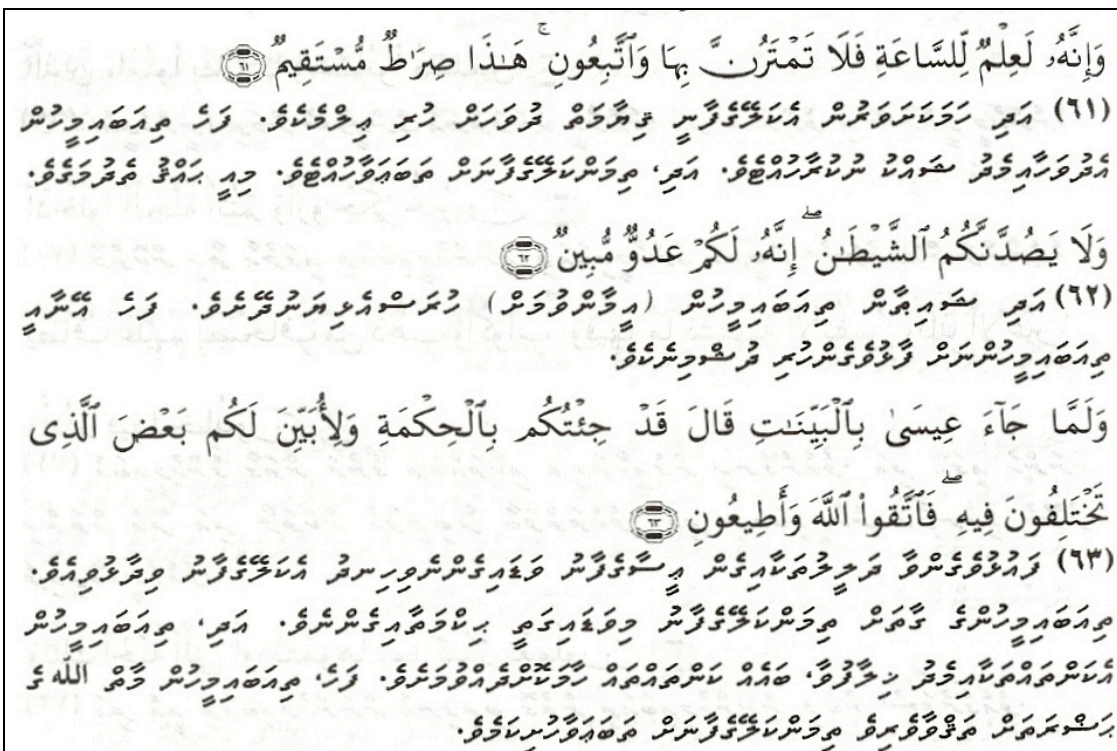 وَإِنَّهُۥ لَعِلْمٌ لِّلسَّاعَةِ فَلَا تَمْتَرُنَّ بِهَا وَٱتَّبِعُونِ ۚ هَـٰذَا صِرَٰطٌ مُّسْتَقِيمٌ ۝٦١
(٦١) އަދި ހަމަކަށަވަރުން އެކަލޭގެފާނީ ޤިޔާމަތް ދުވަހަށް ހުރި ޢިލްމެކެވެ. ފަހެ ތިޔަބައިމީހުން
އެދުވަހާއިމެދު ޝައްކު ނުކުރާހުއްޓެވެ. އަދި، ތިމަންކަލޭގެފާނަށް ތަބަޢަވާހުއްޓެވެ. މިއީ ޙައްޤު ތެދުމަގެވެ.
وَلَا يَصُدَّنَّكُمُ ٱلشَّيْطَـٰنُ ۖ إِنَّهُۥ لَكُمْ عَدُوٌّ مُّبِينٌ ۝٦٢
(٦٢) އަދި ޝައިޠާން ތިޔަބައިމީހުން (އީމާންވުމަށް) ހުރަސްއެޅިޔަނުދޭށެވެ. ފަހެ އޭނާއީ
ތިޔަބައިމީހުންނަށް ފާޅުވެގެންހުރި ދުޝްމިނެކެވެ.
وَلَمَّا جَآءَ عِيسَىٰ بِٱلْبَيِّنَـٰتِ قَالَ قَدْ جِئْتُكُم بِٱلْحِكْمَةِ وَلِأُبَيِّنَ لَكُم بَعْضَ ٱلَّذِى
تَخْتَلِفُونَ فِيهِ ۖ فَٱتَّقُوا۟ ٱللَّهَ وَأَطِيعُونِ ۝٦٣
(٦٣) ފައުޅުވެގެންވާ ދަލީލުތަކާއިގެން ޢީސާގެފާނު ވަޑައިގެންނެވިހިނދު އެކަލޭގެފާނު ވިދާޅުވިއެވެ.
ތިޔަބައިމީހުންގެ ގާތަށް ތިމަންކަލޭގެފާނު މިވަޑައިގަތީ ޙިކްމަތާއިގެންނެވެ. އަދި، ތިޔަބައިމީހުން
އެކަންތައްތަކާއިމެދު ޚިލާފުވާ، ބައެއް ކަންތައްތައް ހާމަކޮށްދެއްވުމަށެވެ. ފަހެ، ތިޔަބައިމީހުން މާތް اللّٰه ގެ
ޙަޟްރަތަށް ތަޤްވާވެރިވެ ތިމަންކަލޭގެފާނަށް ތަބަޢަވާހުށިކަމެވެ.